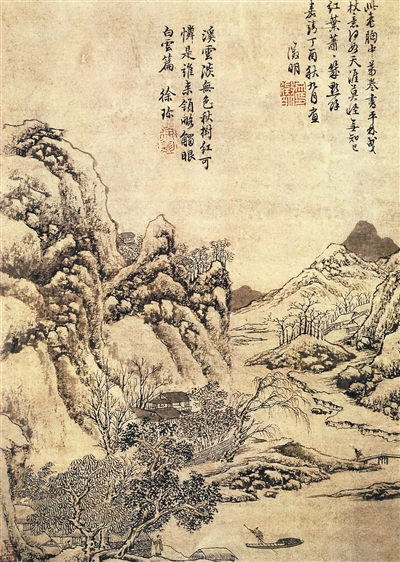 此老胸中萬卷書平林曳
杖意何如天涯莫道無知己
紅葉蕭蕭鬢
嘉靖丁酉秋九月畫
徵明
溪雲淡無色秋樹紅可
憐是誰來領略觸眼
白雲篇 徐